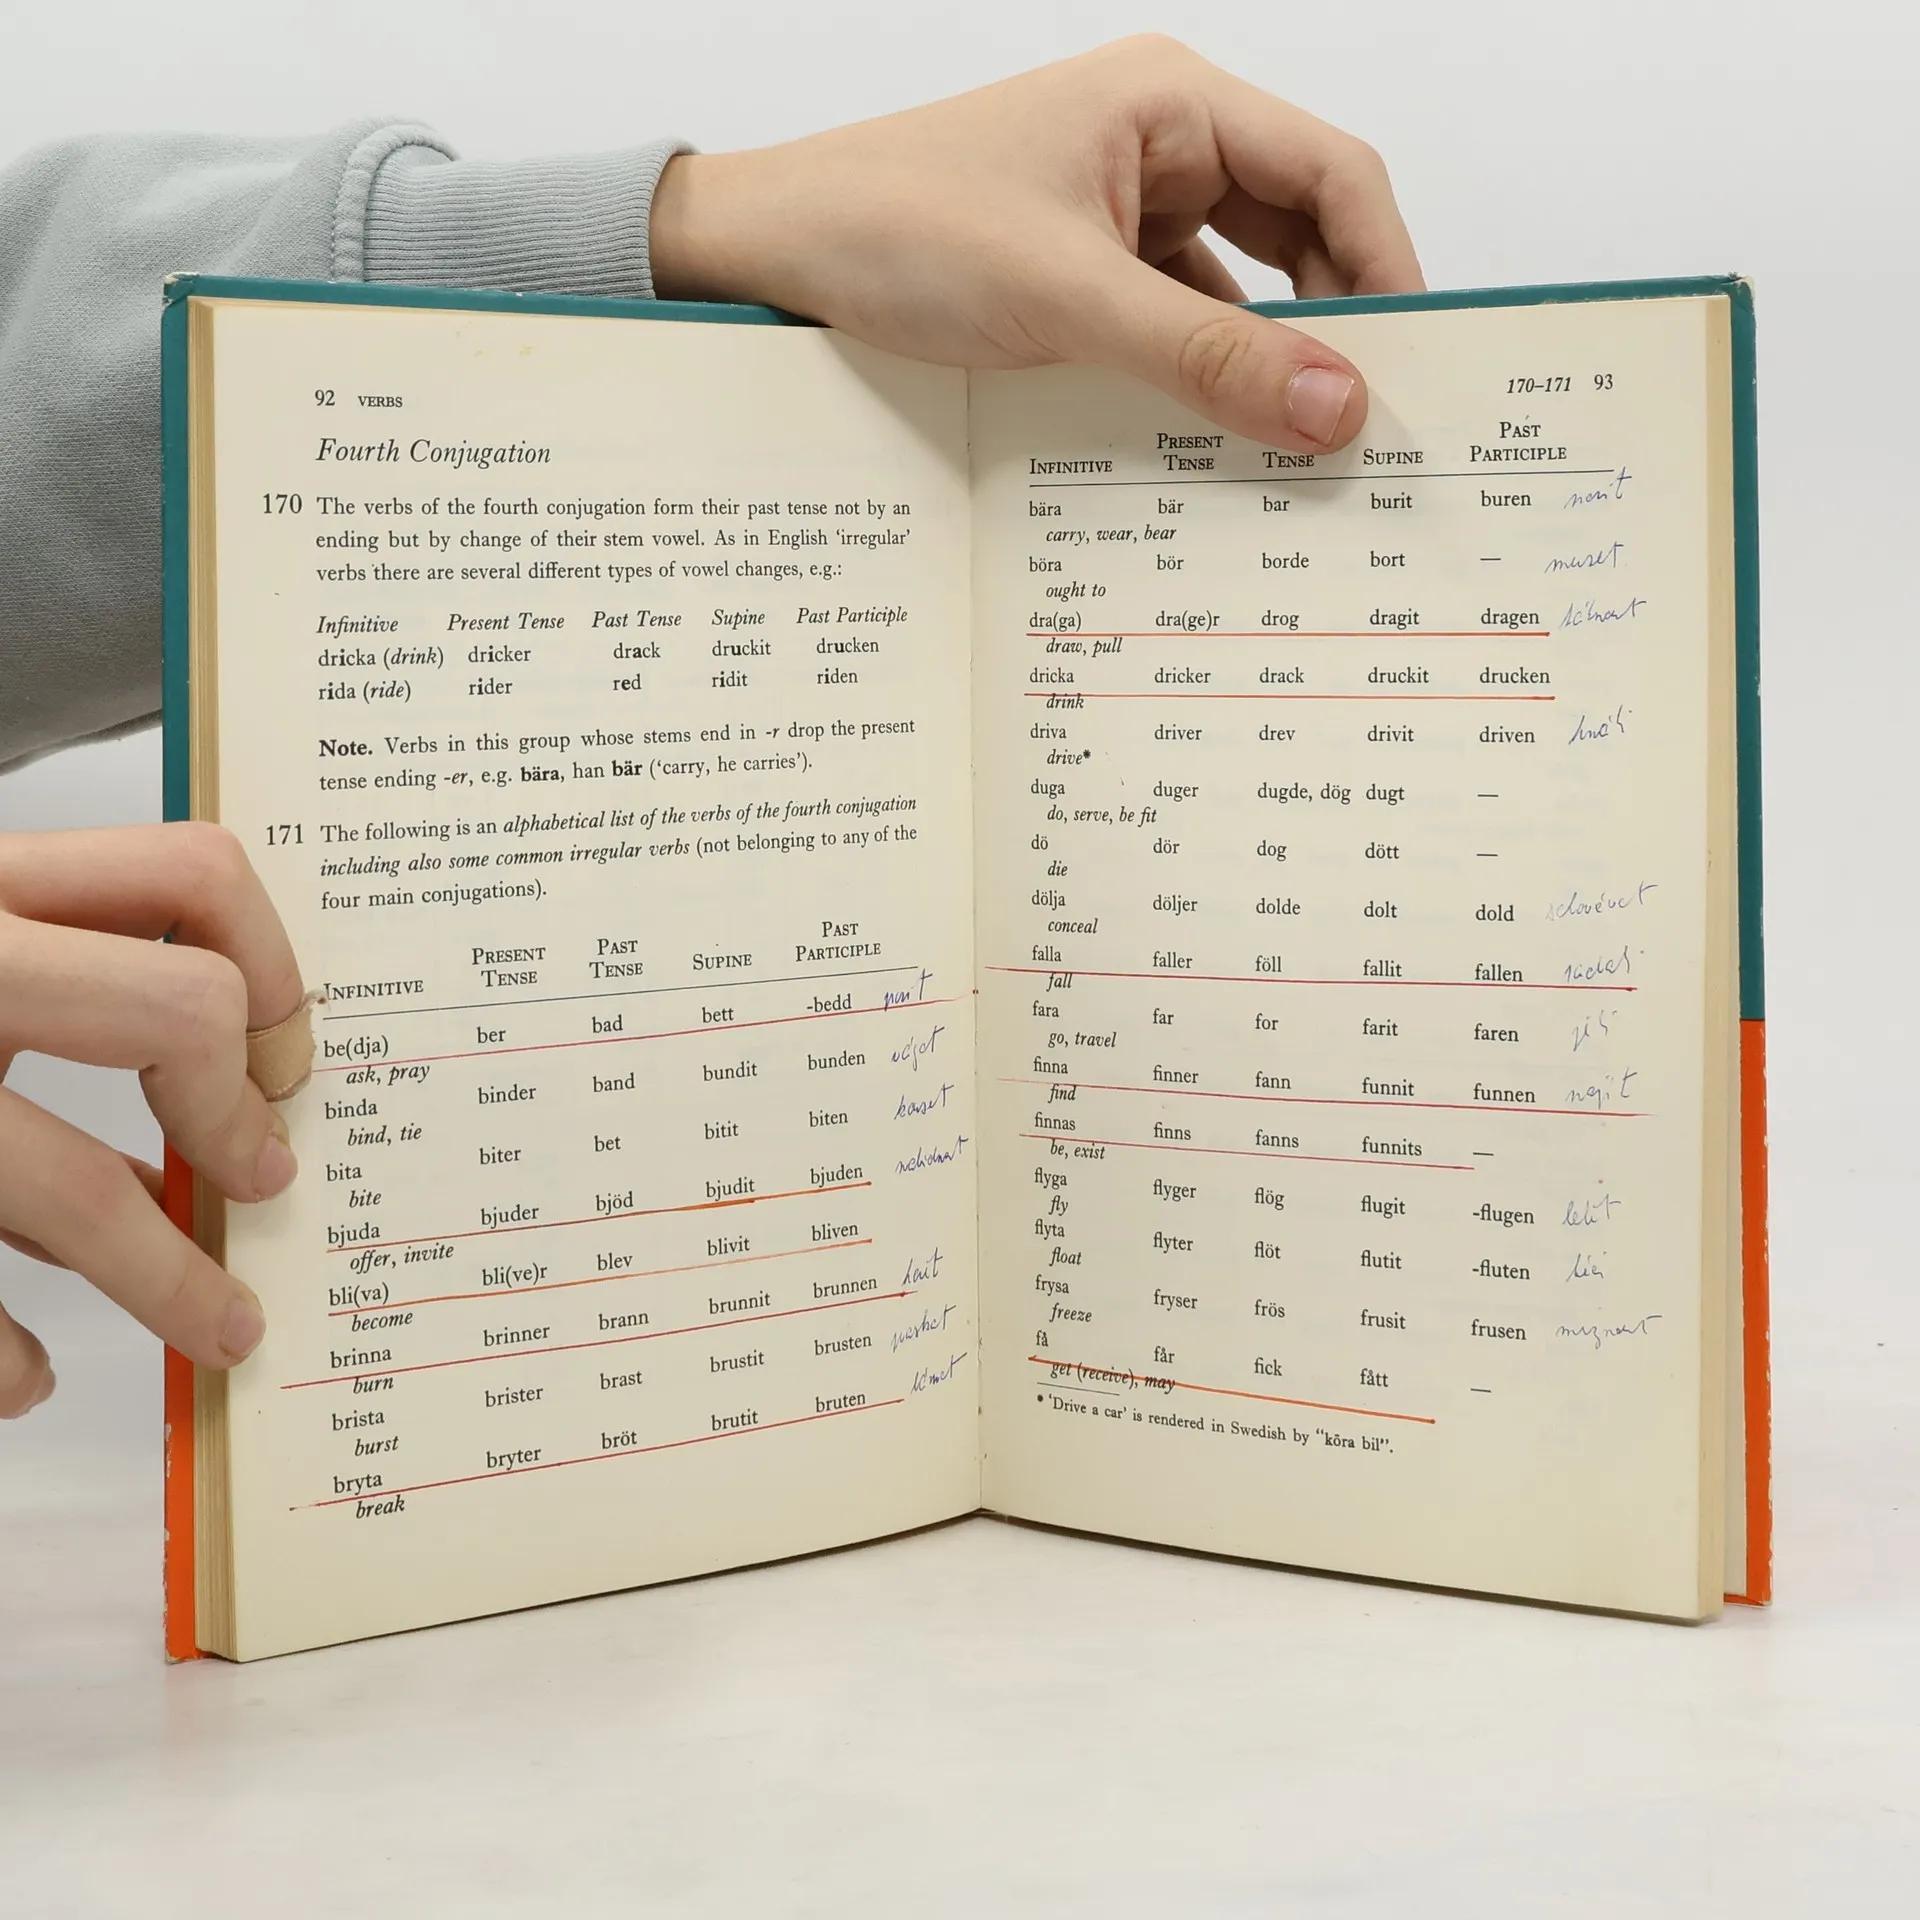 92 VERBS
Fourth Conjugation
170 The verbs of the fourth conjugation form their past tense not by an
ending but by change of their stem vowel. As in English ‘irregular’
verbs there are several different types of vowel changes, e.g.:
Infinitive Present Tense Past Tense Supine Past Participle
dricka (drink) dricker drack druckit drucken
rida (ride) rider red ridit riden
Note. Verbs in this group whose stems end in -r drop the present
tense ending -er, e.g. bära, han bär (‘carry, he carries’).
171 The following is an alphabetical list of the verbs of the fourth conjugation
including also some common irregular verbs (not belonging to any of the
four main conjugations).
INFINITIVE PRESENT TENSE PAST TENSE SUPINE PAST PARTICIPLE
be(dja) ber bad bett -bedd
ask, pray
binda binder band bundit bunden
bind, tie
bita biter bet bitit biten
bite
bjuda bjuder bjöd bjudit bjuden
offer, invite
bli(va) bli(ve)r blev blivit bliven
become
brinna brinner brann brunnit brunnen
burn
brista brister brast brustit brusten
burst
bryta bryter bröt brutit bruten
break
170–171 93
INFINITIVE PRESENT TENSE TENSE SUPINE PAST PARTICIPLE
bära bär bar burit buren
carry, wear, bear
böra bör borde bort —
ought to
dra(ga) dra(ge)r drog dragit dragen
draw, pull
dricka dricker drack druckit drucken
drink
driva driver drev drivit driven
drive*
duga duger dugde, dög dugt —
do, serve, be fit
dö dör dog dött —
die
dölja döljer dolde dolt dold
conceal
falla faller föll fallit fallen
fall
fara far for farit faren
go, travel
finna finner fann funnit funnen najít
find
finnas finns fanns funnits —
be, exist
flyga flyger flög flugit -flugen
fly
flyta flyter flöt flutit -fluten
float
frysa fryser frös frusit frusen
freeze
få får fick fått —
get (receive), may
* ‘Drive a car’ is rendered in Swedish by “köra bil”.